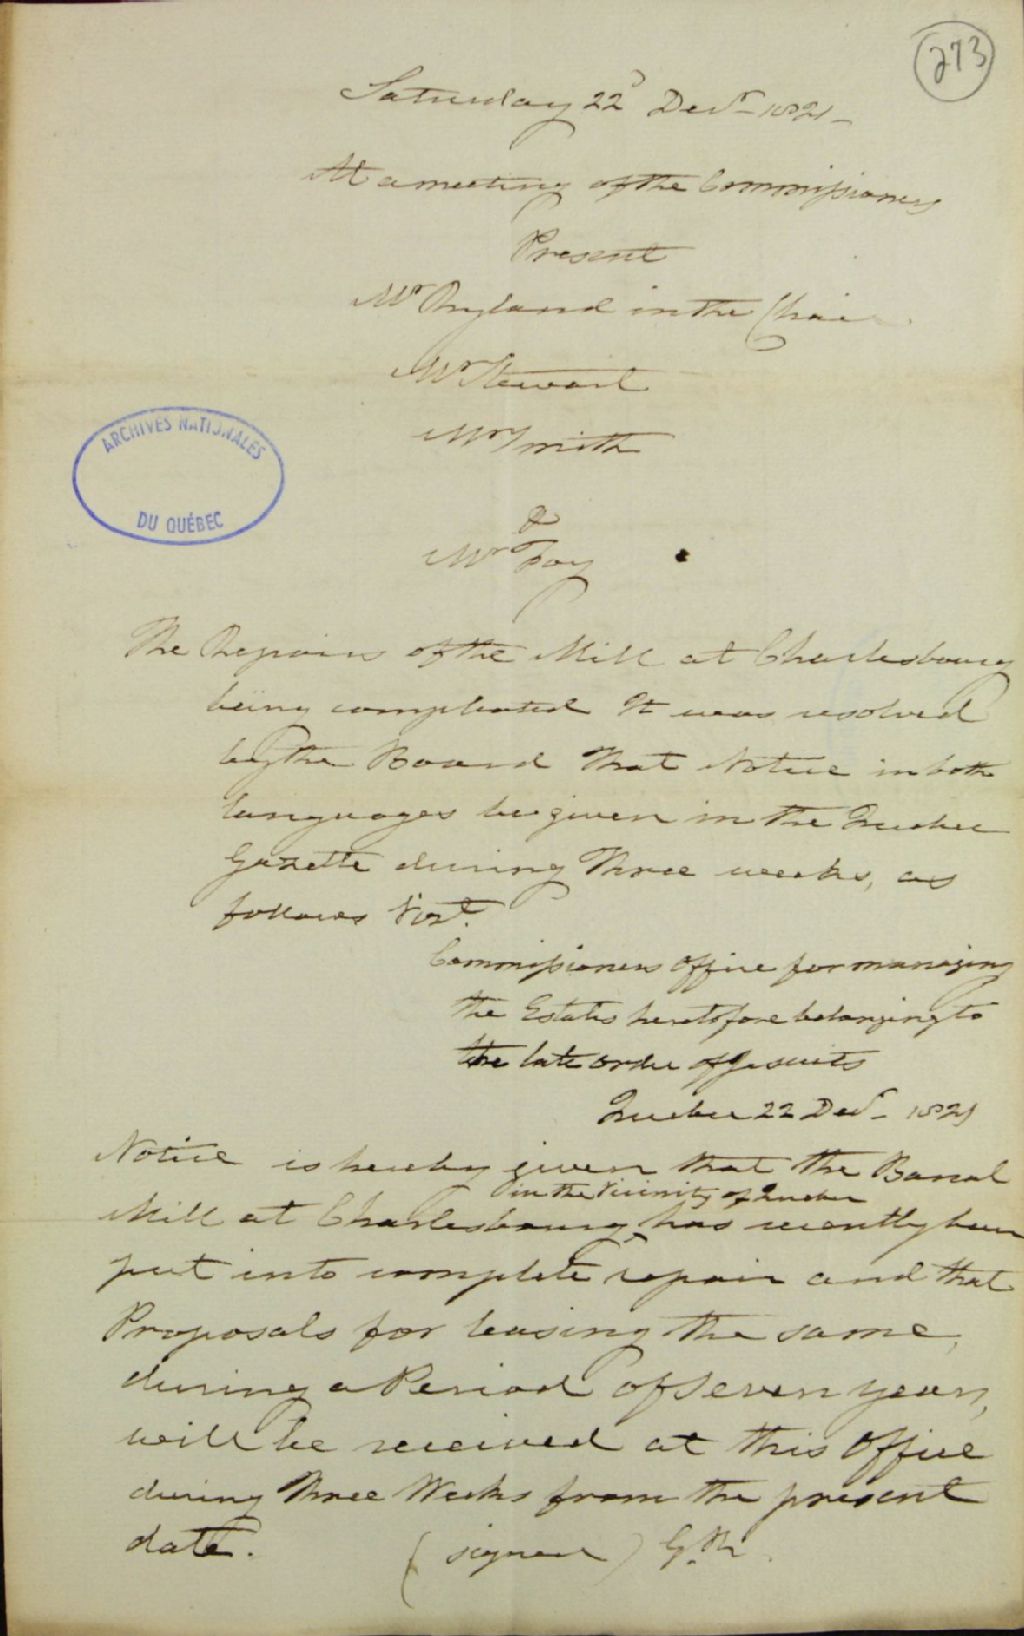 273
Saturday 22d Decr. 1821 -
At a meeting of the Commissioners
Present
Mr Ryland in the Chair
Mr Stewart
Mr Smith
&
Mr Foy
ARCHIVES NATIONALES
DU QUÉBEC
The Repairs of the Mill at Charlesbourg
being compleated It was resolved
by the Board That Notice in both
languages be given in the Quebec
Gazette during Three weeks, as
follows Vizt.
Commissioners Office for managing
the Estates heretofore belonging to
the late order of Jesuits
Quebec 22 Decr. 1821
Notice is hereby given that the Banal
in the Vicinity of Quebec
Mill at Charlesbourg ^ has recently been
put into complete repair and that
Proposals for leasing the same,
during a Period of seven years,
will be received at this Office
during Three Weeks from the present
date. (signed)